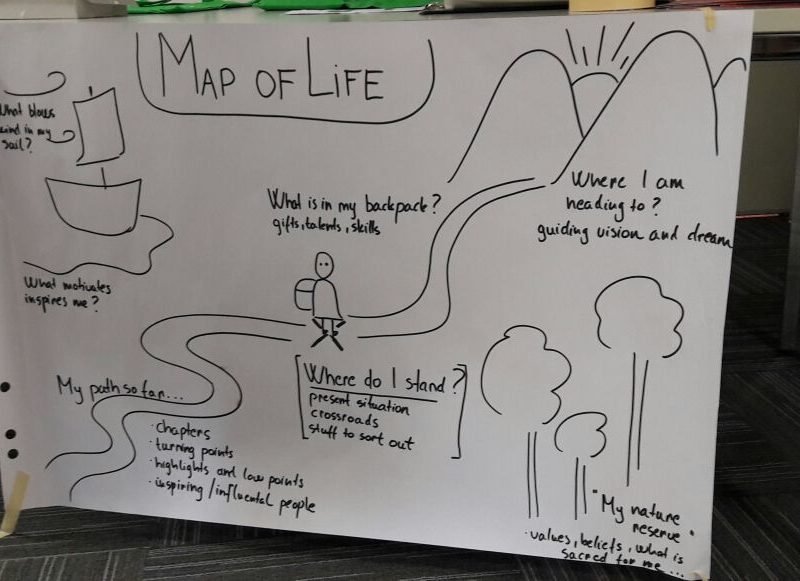 MAP OF LIFE
What blows
wind in my
sail?
What motivates
inspires me?
What is in my backpack?
gifts, talents, skills
Where I am
heading to?
guiding vision and dream
My path so far...
· chapters
· turning points
· highlights and low points
· inspiring/influental people
Where do I stand?
present situation
crossroads
stuff to sort out
"My nature
reserve"
· values, beliefs, what is
sacred for me...